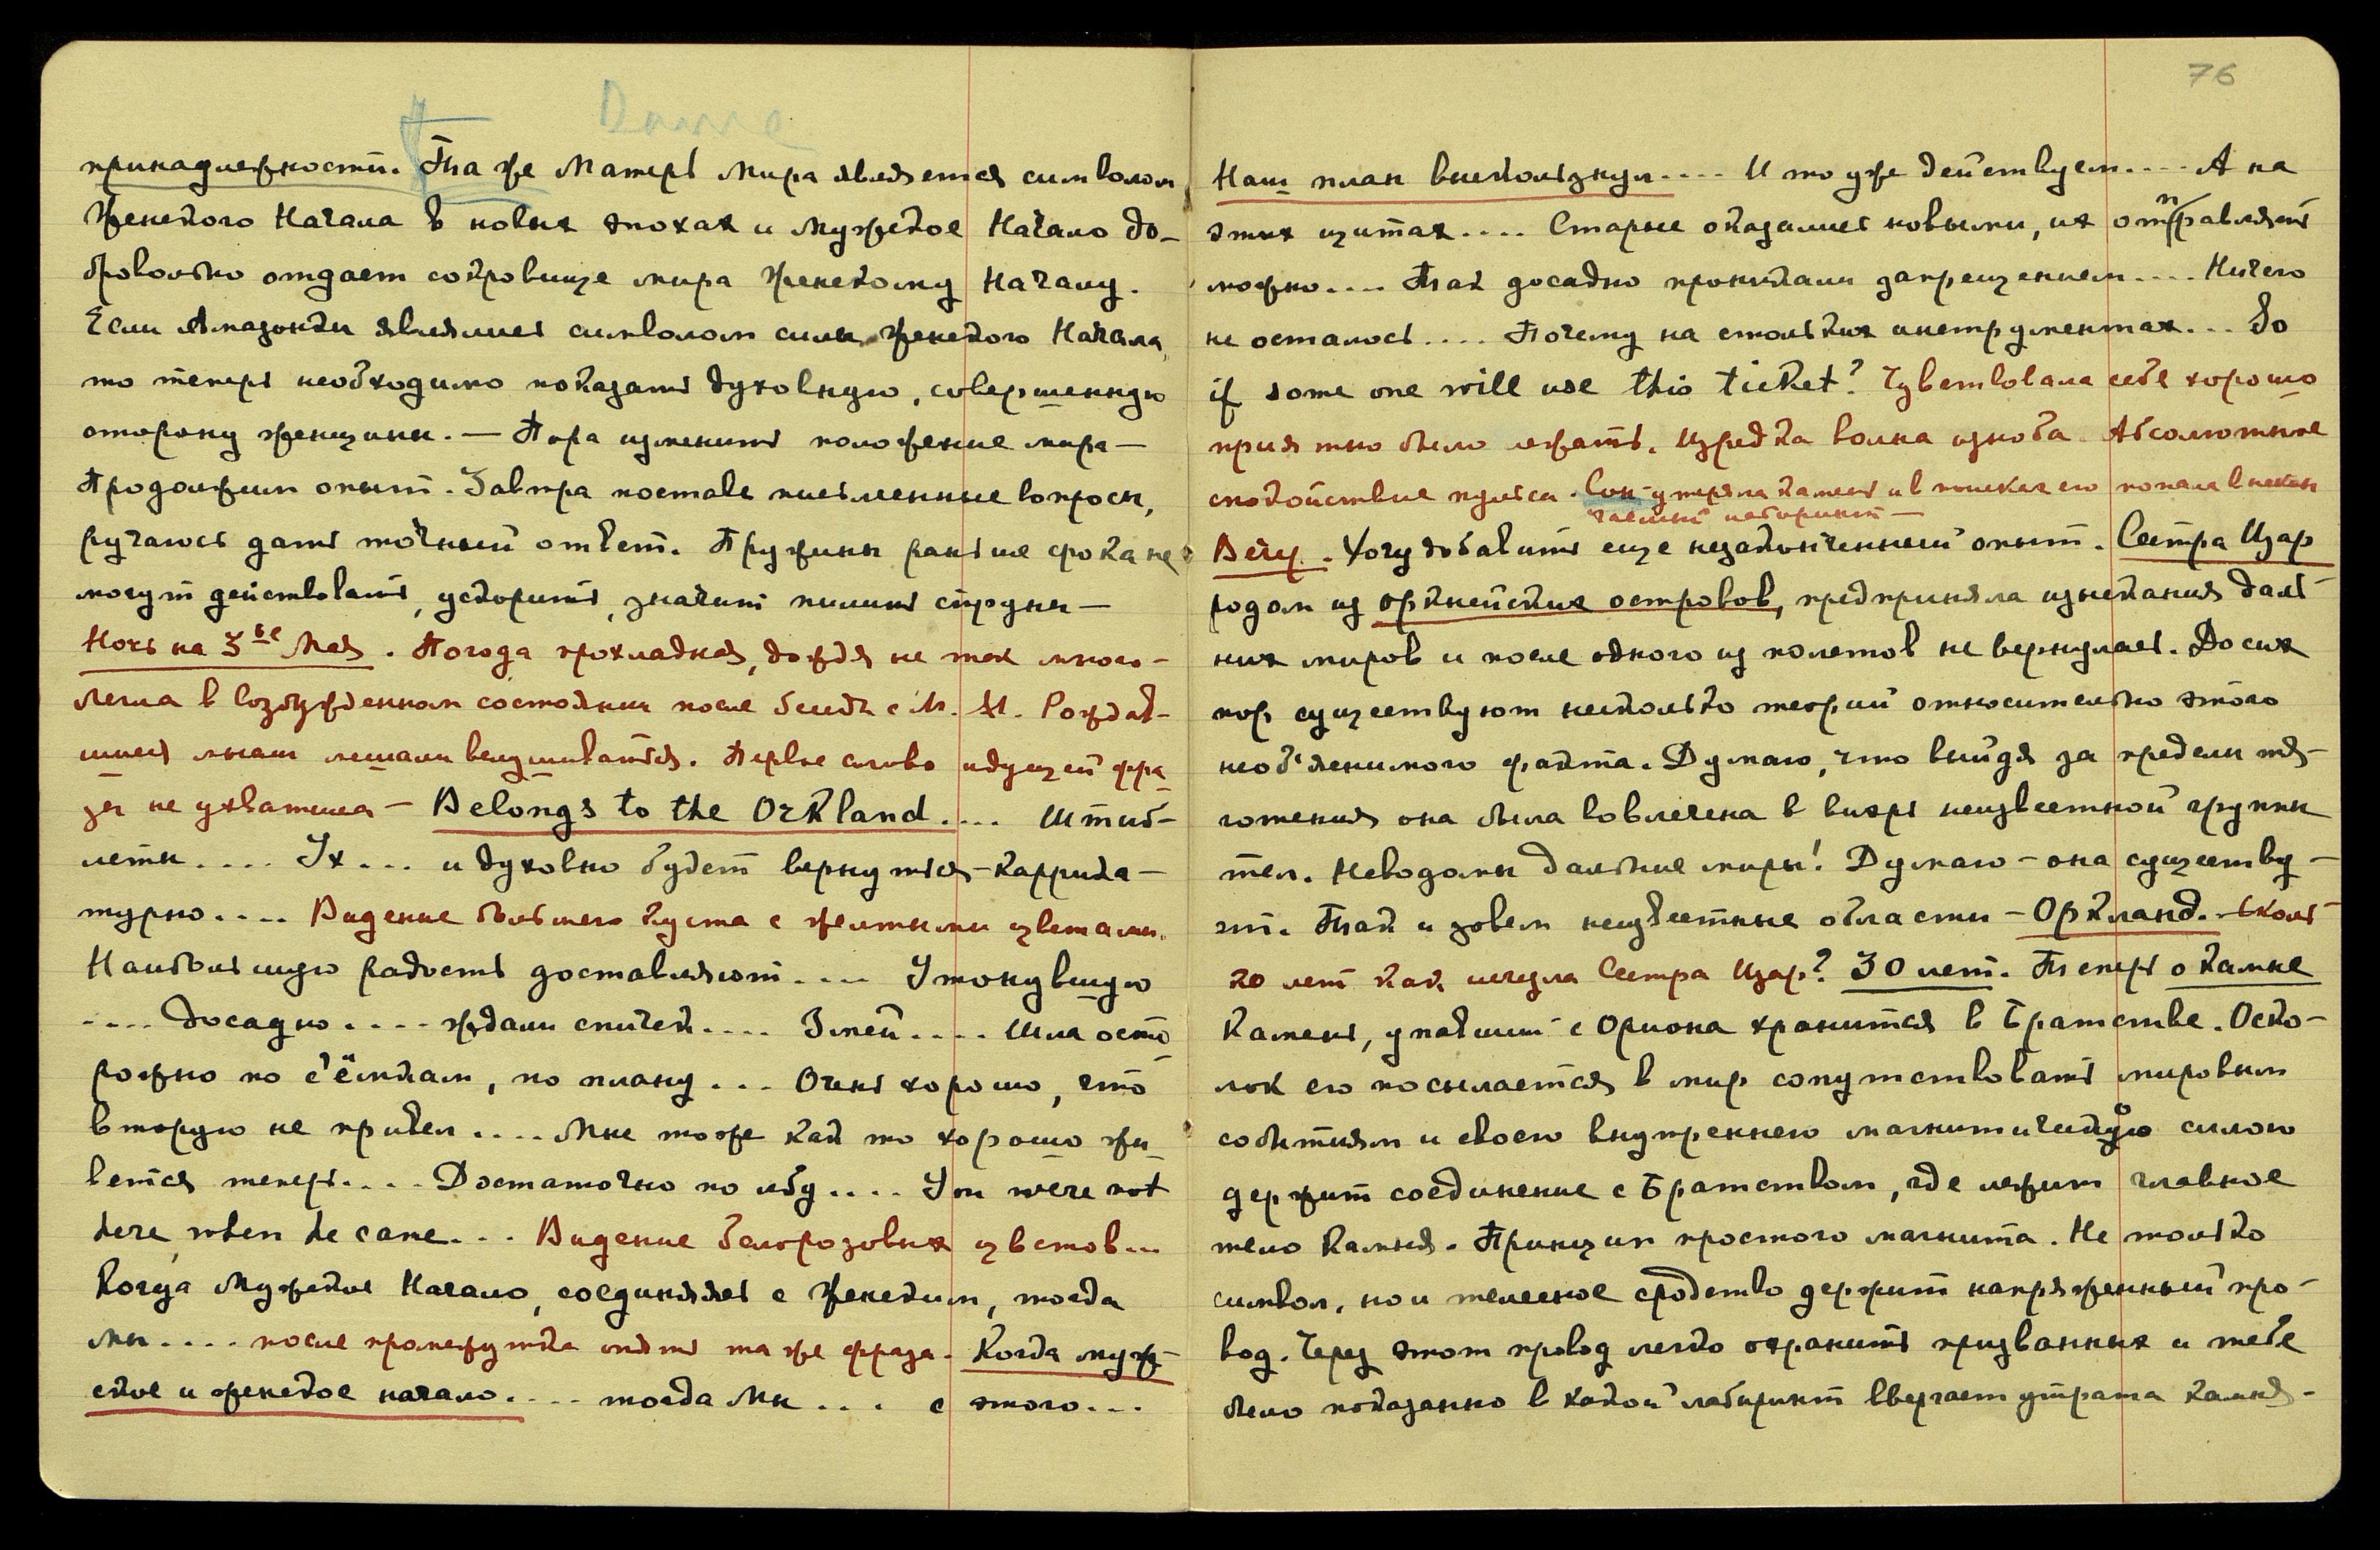 76
принадлежности. Та же Матерь Мира является символом
Женского Начала в новых эпохах и Мужское Начало до-
бровольно отдает сокровище мира Женскому Началу.
Если Амазонки являлись символом силы Женского Начала,
то теперь необходимо показать духовную, совершенную
сторону женщины. — Пора изменить положение мира —
Продолжим опыт. Завтра поставь письменные вопросы,
ручаюсь дать точный ответ. Пружины раньше срока не
могут действовать, ускорить, значит пилить струны —
Ночь на 3ье Мая. Погода прохладная, дождя не так много —
легла в возбужденном состоянии после беседы с М. М. Рождав-
шиеся мысли мешали вслушиваться. Первое слово идущей фра-
зы не ухватила — Belongs to the Orkland .... Штиб-
леты .... Ух ... и духовно будет вернуться — Каррика-
турно .... Видение большого куста с желтыми цветами.
Наибольшую радость доставляют .... Утонувшую
.... Досадно .... ждали спичек .... Змей .... Шла осто-
рожно по с'ёмкам, по плану ... Очень хорошо, что
вторую не привел .... Мне тоже как то хорошо жи-
вется теперь .... Достаточно по лбу .... You were not
here, when he came ... Видение белорозовых цветов ...
Когда Мужское Начало, соединяясь с Женским, тогда
мы .... после промежутка опять та же фраза. Когда муж-
ское и женское начало .... тогда Мы .... с этого ...
Наш план выскользнул .... И то уже действуем .... А на
этих щитах .... Старые оказались новыми, их отправлять
можно .... Так досадно проникали запрещением .... Ничего
не осталось .... Почему на стольких инструментах ... So
if some one will use this ticket? Чувствовала себя хорошо
приятно было лежать. Изредка волна озноба. Абсолютное
спокойствие пульса. Сон — утеряла камень и в поисках его попала в нескон-
чаемый лабиринт —
Вечер. Хочу добавить еще незаконченный опыт. Сестра Изар
родом из Оркнейских островов, предприняла изыскания даль-
них миров и после одного из полетов не вернулась. До сих
пор существуют несколько теорий относительно этого
необ'яснимого факта. Думаю, что выйдя за пределы тя-
готения она была вовлечена в вихрь неизвестной группы
тел. Неведомы дальние миры! Думаю — она существу-
ет. Так и зовем неизвестные области — Оркланд. — Сколь-
ко лет как исчезла Сестра Изар? 30 лет. Теперь о камне
Камень, упавший с Ориона хранится в Братстве. Оско-
лок его посылается в мир сопутствовать мировым
событиям и своею внутреннею магнитическою силою
держит соединение с Братством, где лежит главное
тело Камня. Принцип простого магнита. Не только
символ, но и телесное сродство держит напряженный про-
вод. Через этот провод легко охранить призванных и тебе
было показанно в какой лабиринт ввергает утрата камня —